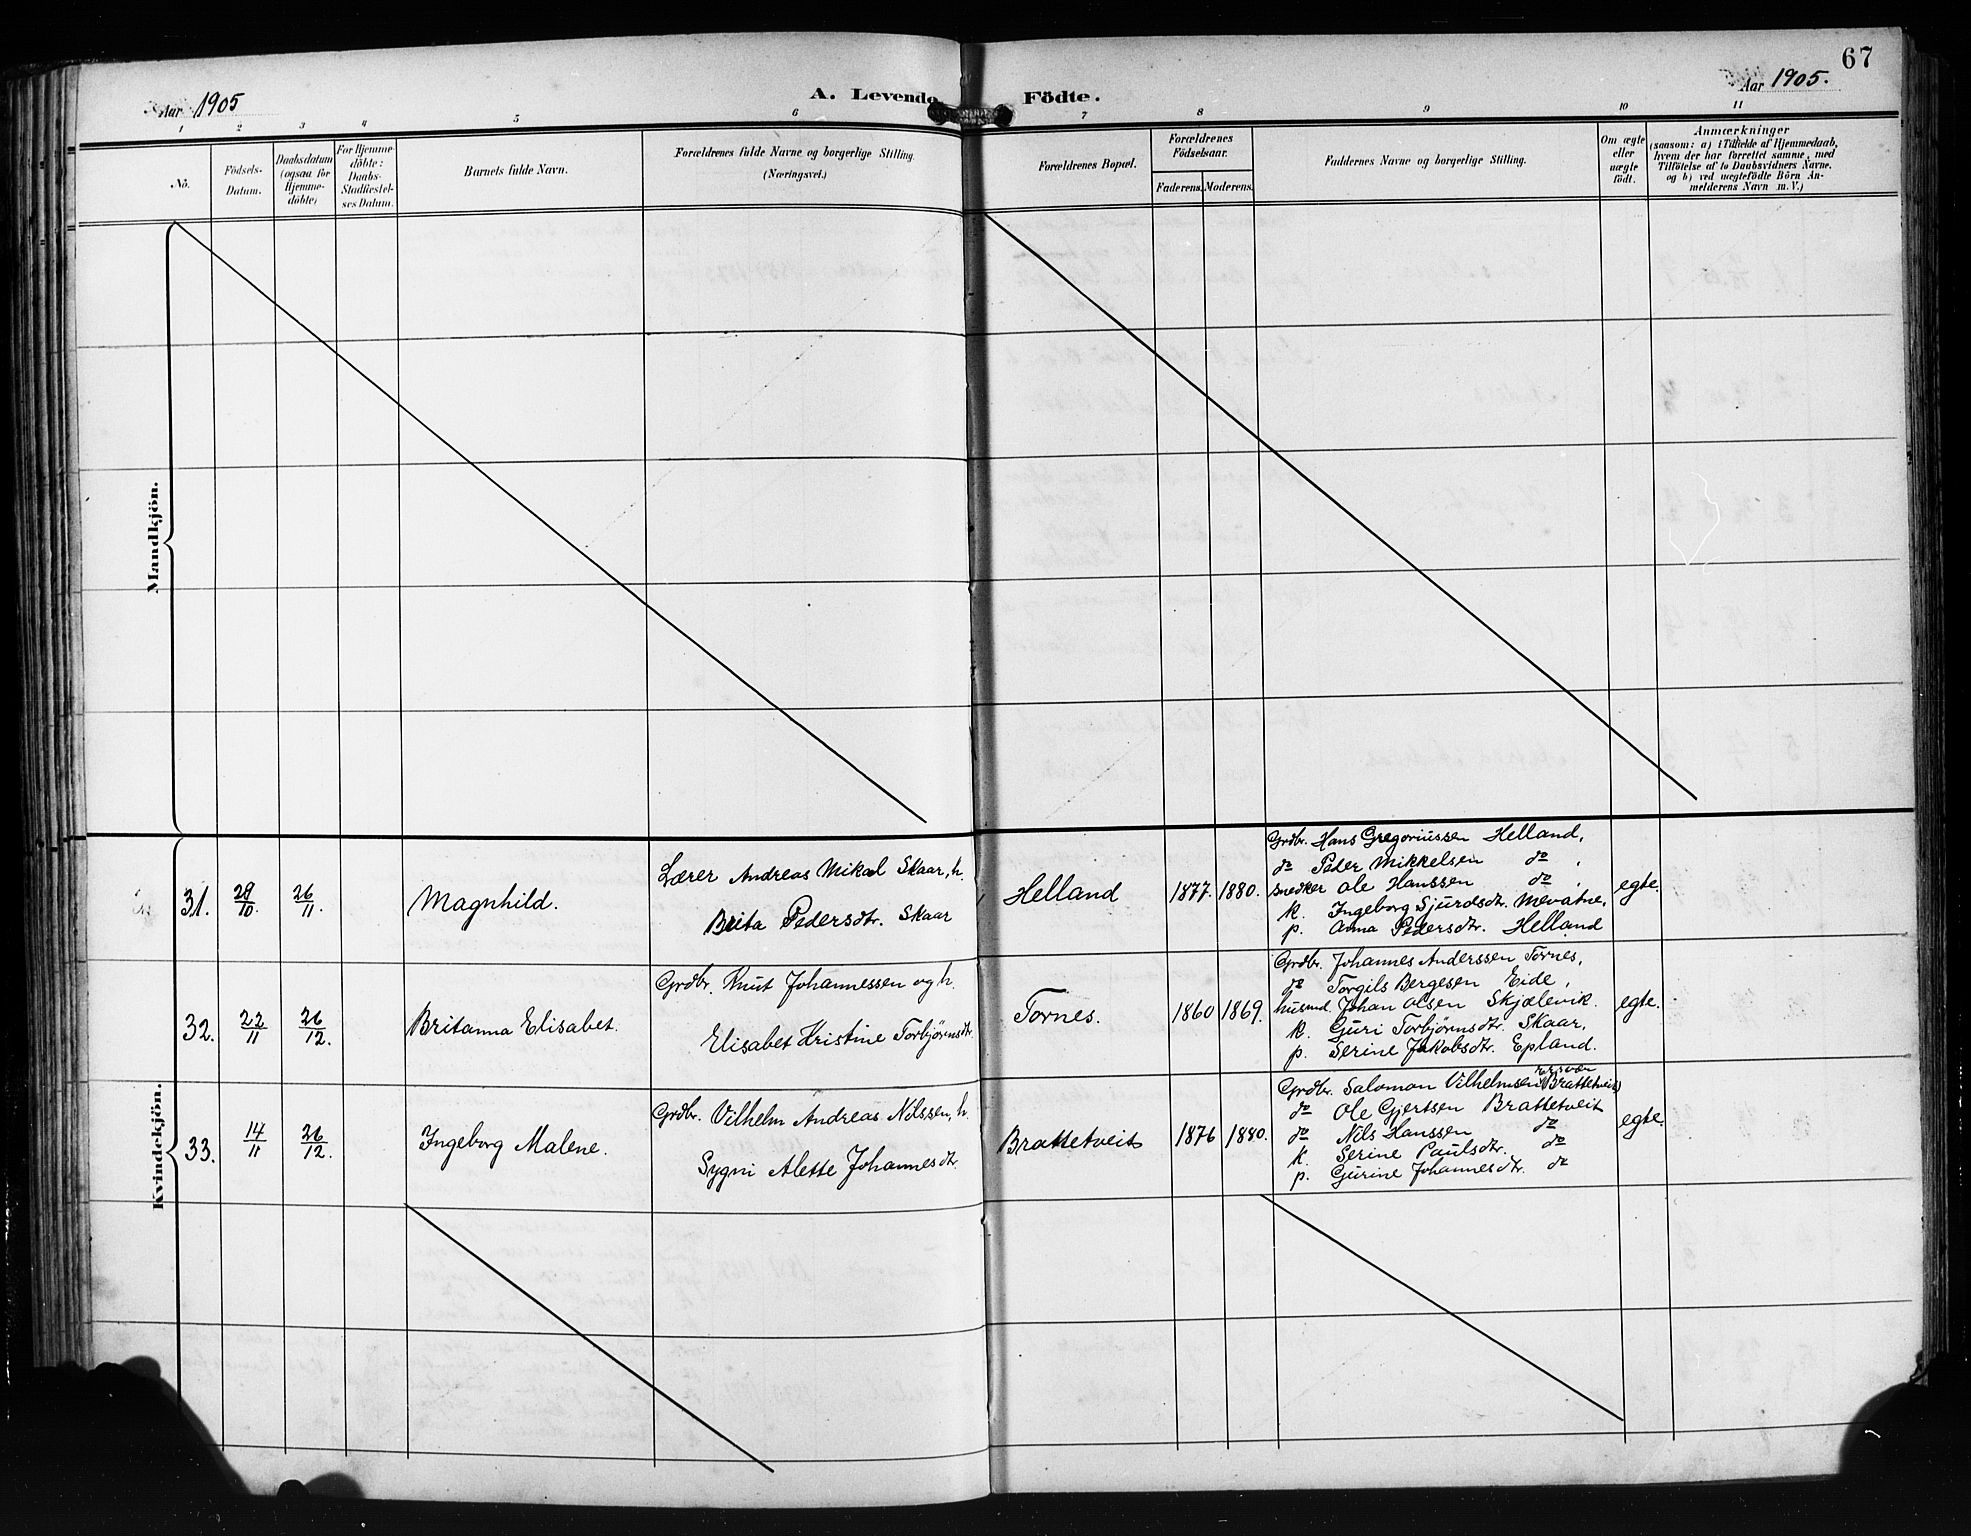 67
Aar 1905
A. Levende Födte.
Aar 1905.
1 2 3 4 5 6 7 8 9 10 11
No.
Födsels-Datum.
Daabsdatum (ogsaa for Hjemme-döbte)
For Hjemme-döbte: Daabs-Stadfæstel-ses Datum.
Barnets fulde Navn.
Forældrenes fulde Navne og borgerlige Stilling.
(Næringsvei.)
Forældrenes Bopæl.
Forældrenes Födselsaar.
Faderens. Moderens.
Faddernes Navne og borgerlige Stilling.
Om ægte eller uægte födt.
Anmærkninger
(saasom: a) i Tilfælde af Hjemmedaab,
hvem der har forrettet samme, med
Tilföielse af to Daabsvidners Navne.
og b) ved uægtefödte Börn An-
melderens Navn m. V.)
Mandkjön.
Kvindekjön.
31. 28/10. 26/11. Magnhild.
Lærer Andreas Mikal Skaar, h.
Brita Pedersdtr. Skaar
Helland 1877. 1880.
Grdbr. Hans Gregoriussen Helland,
do Peder Mikkelsen do,
Snedker Ole Hanssen do,
k. Ingeborg Sjurdsdtr. Mevatne,
p. Anna Pedersdtr. Helland
egte.
32. 22/11 26/12. Britanna Elisabet.
Grdbr. Knut Johannessen og h.
Elisabet Kristine Torbjørnsdtr.
Tornes. 1860 1869.
Grdbr. Johannes Anderssen Tornes,
do Torgils Bergesen Eide,
husmd. Johan Olsen Skjælevik.
k. Guri Torbjørnsdtr. Skaar,
p. Serine Jakobsdtr. Epland.
egte.
33. 14/11 26/12. Ingeborg Malene.
Grdbr. Vilhelm Andreas Nilssen, h.
Sygni Alette Johannesdtr.
Brattetveit 1876 1880.
Grdbr. Salomon Vilhelmsen Brattetveit
do Ole Gjertsen Brattetveit
do Nils Hanssen do
k. Serine Paulsdtr. do
p. Gurine Johannesdtr. do
egte.